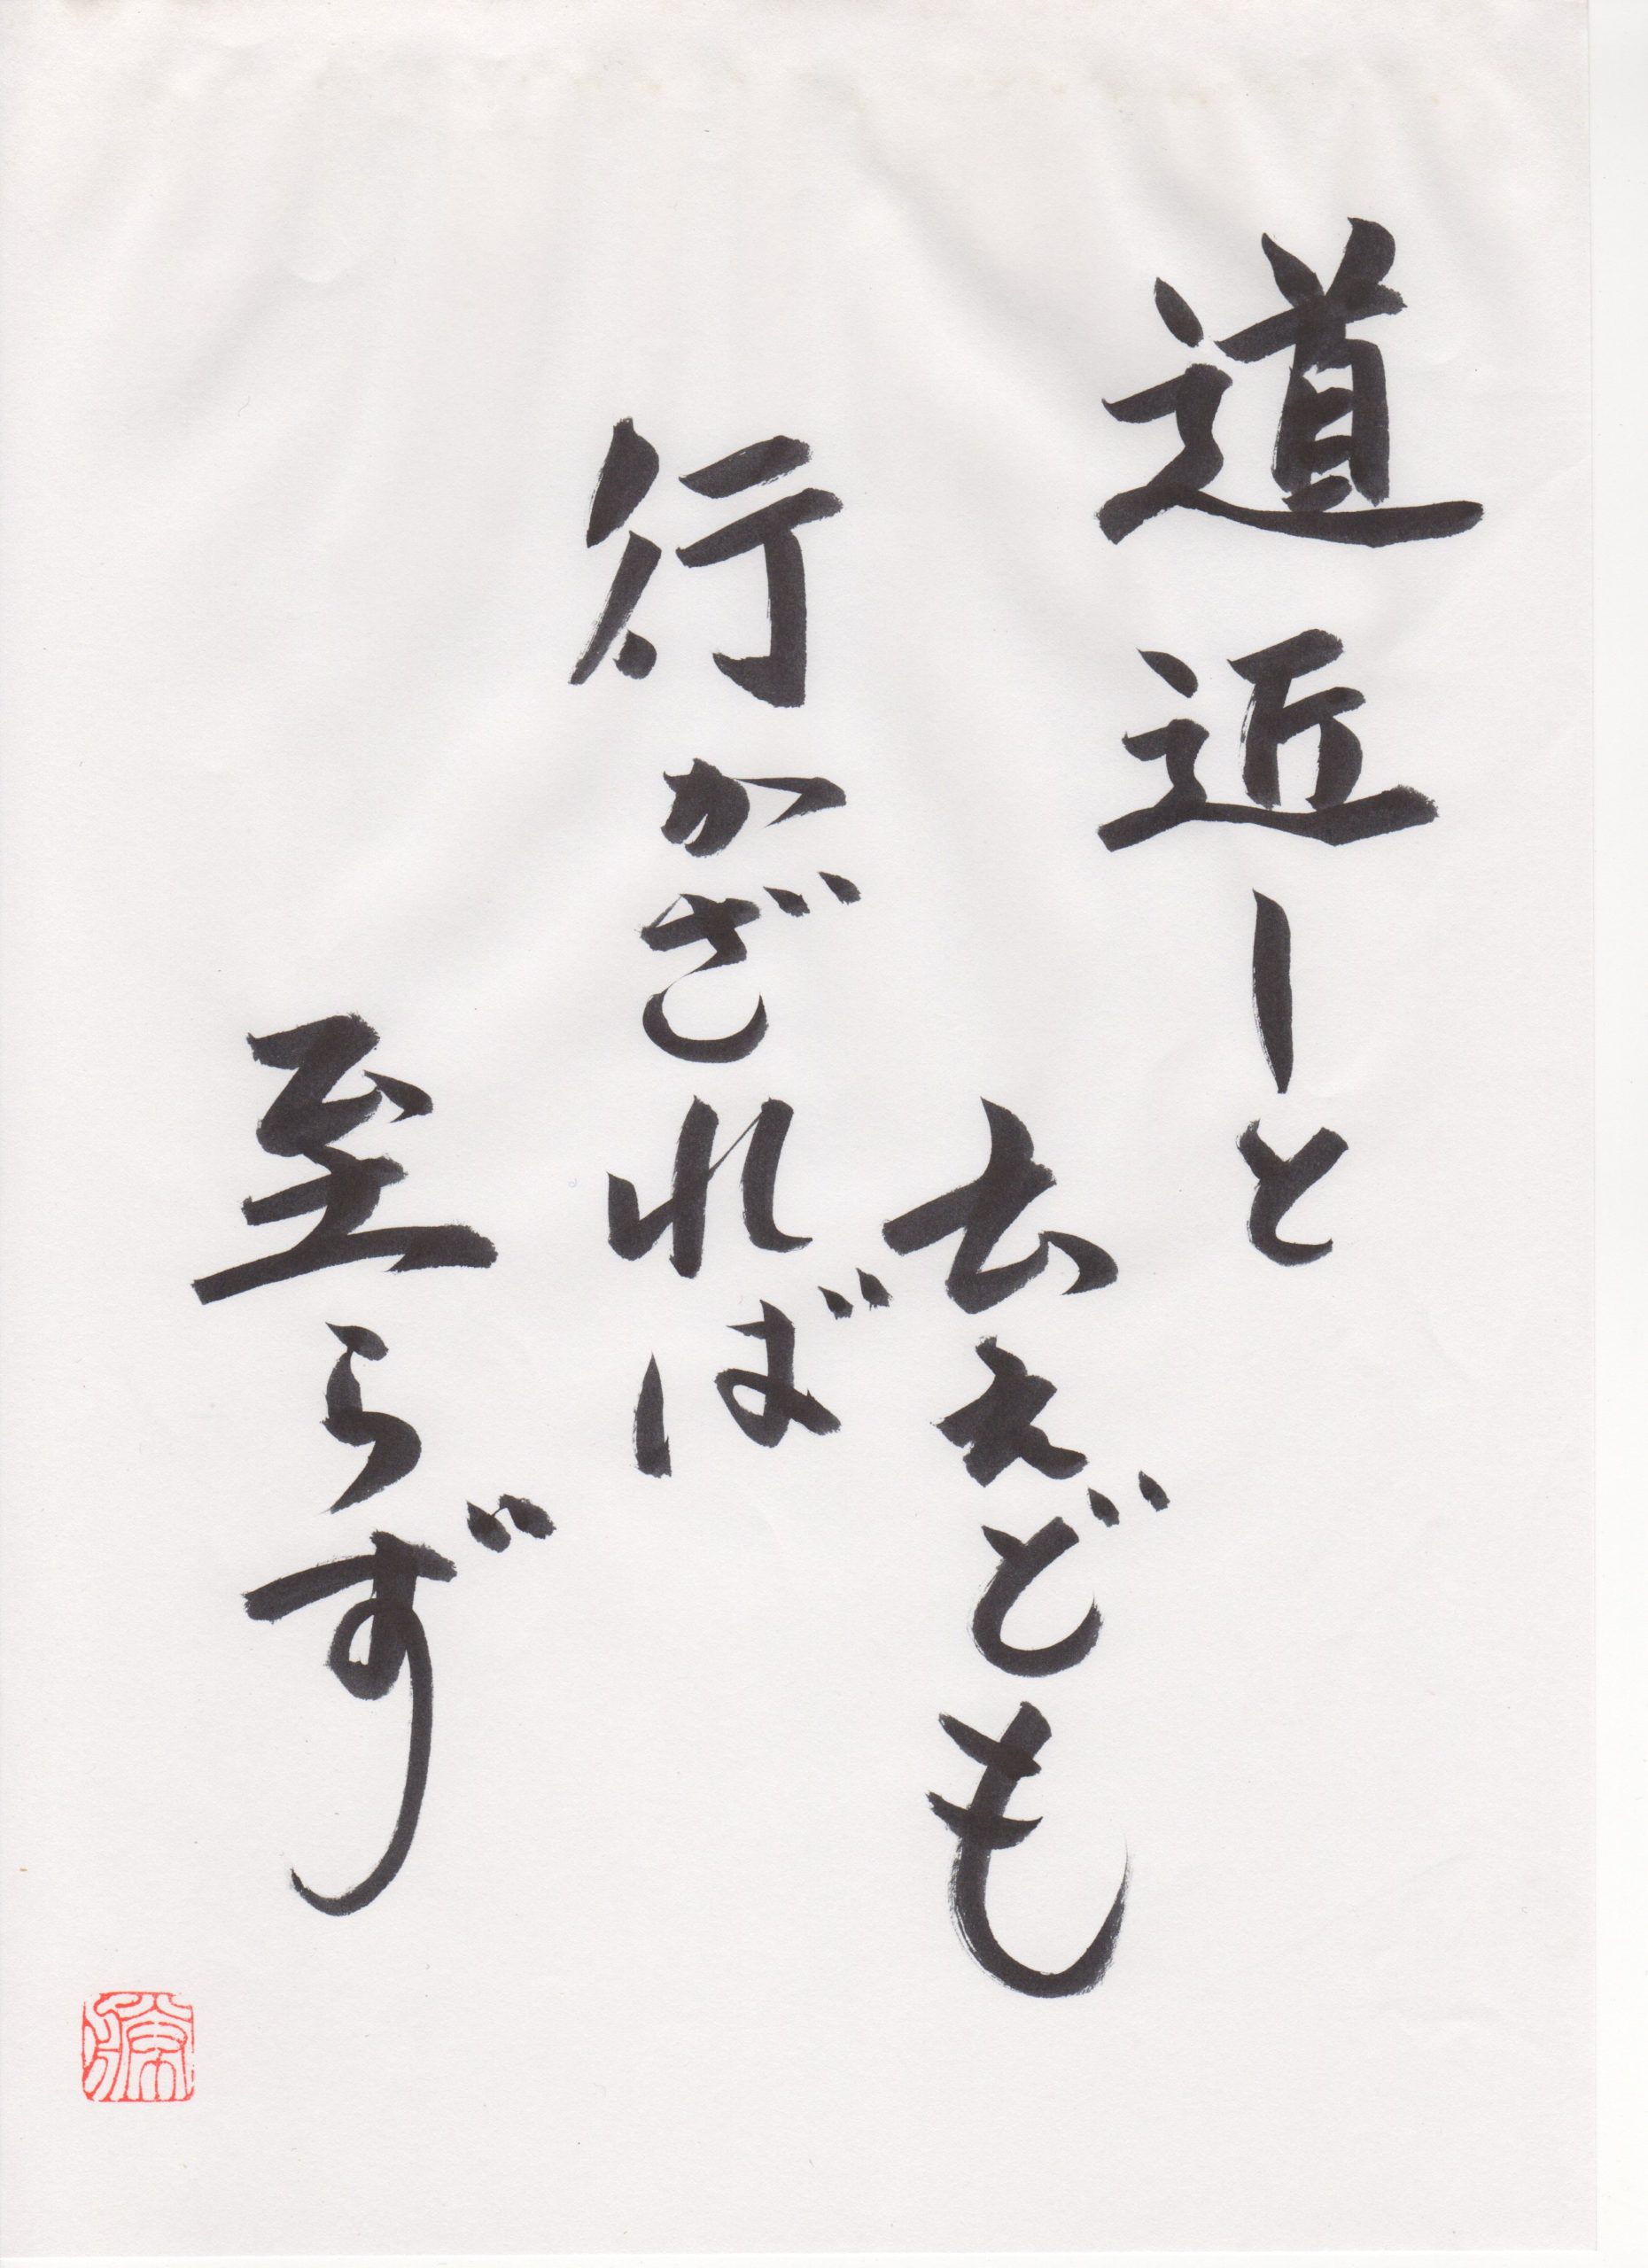 道近しと
云えども
行かざれば
至らず